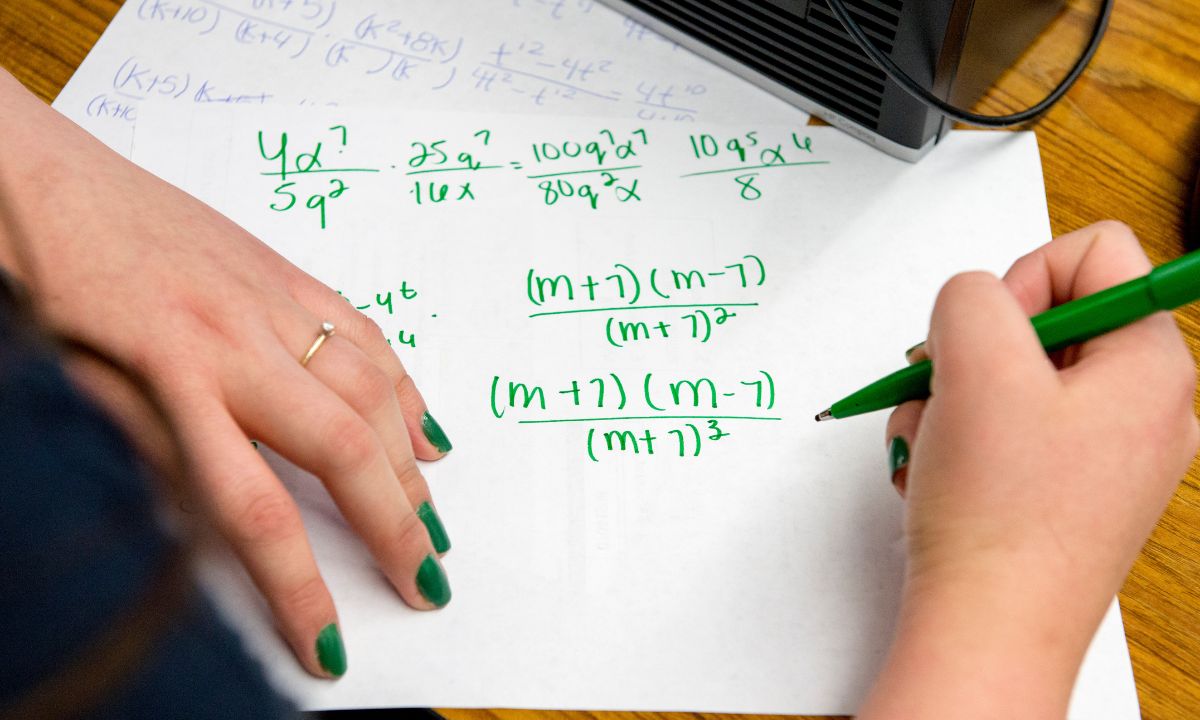 (k+10) (k+4) · (k²+8k) t¹²-4t²
(k )(k ) 4t²-t¹² = 4t¹⁰
(k+5)
(k+10
4x⁷/5q² · 25q⁷/16x = 100q⁷x⁷/80q²x 10q⁵x⁶/8
-4t
(m+7)(m-7)/(m+7)²
(m+7)(m-7)/(m+7)³